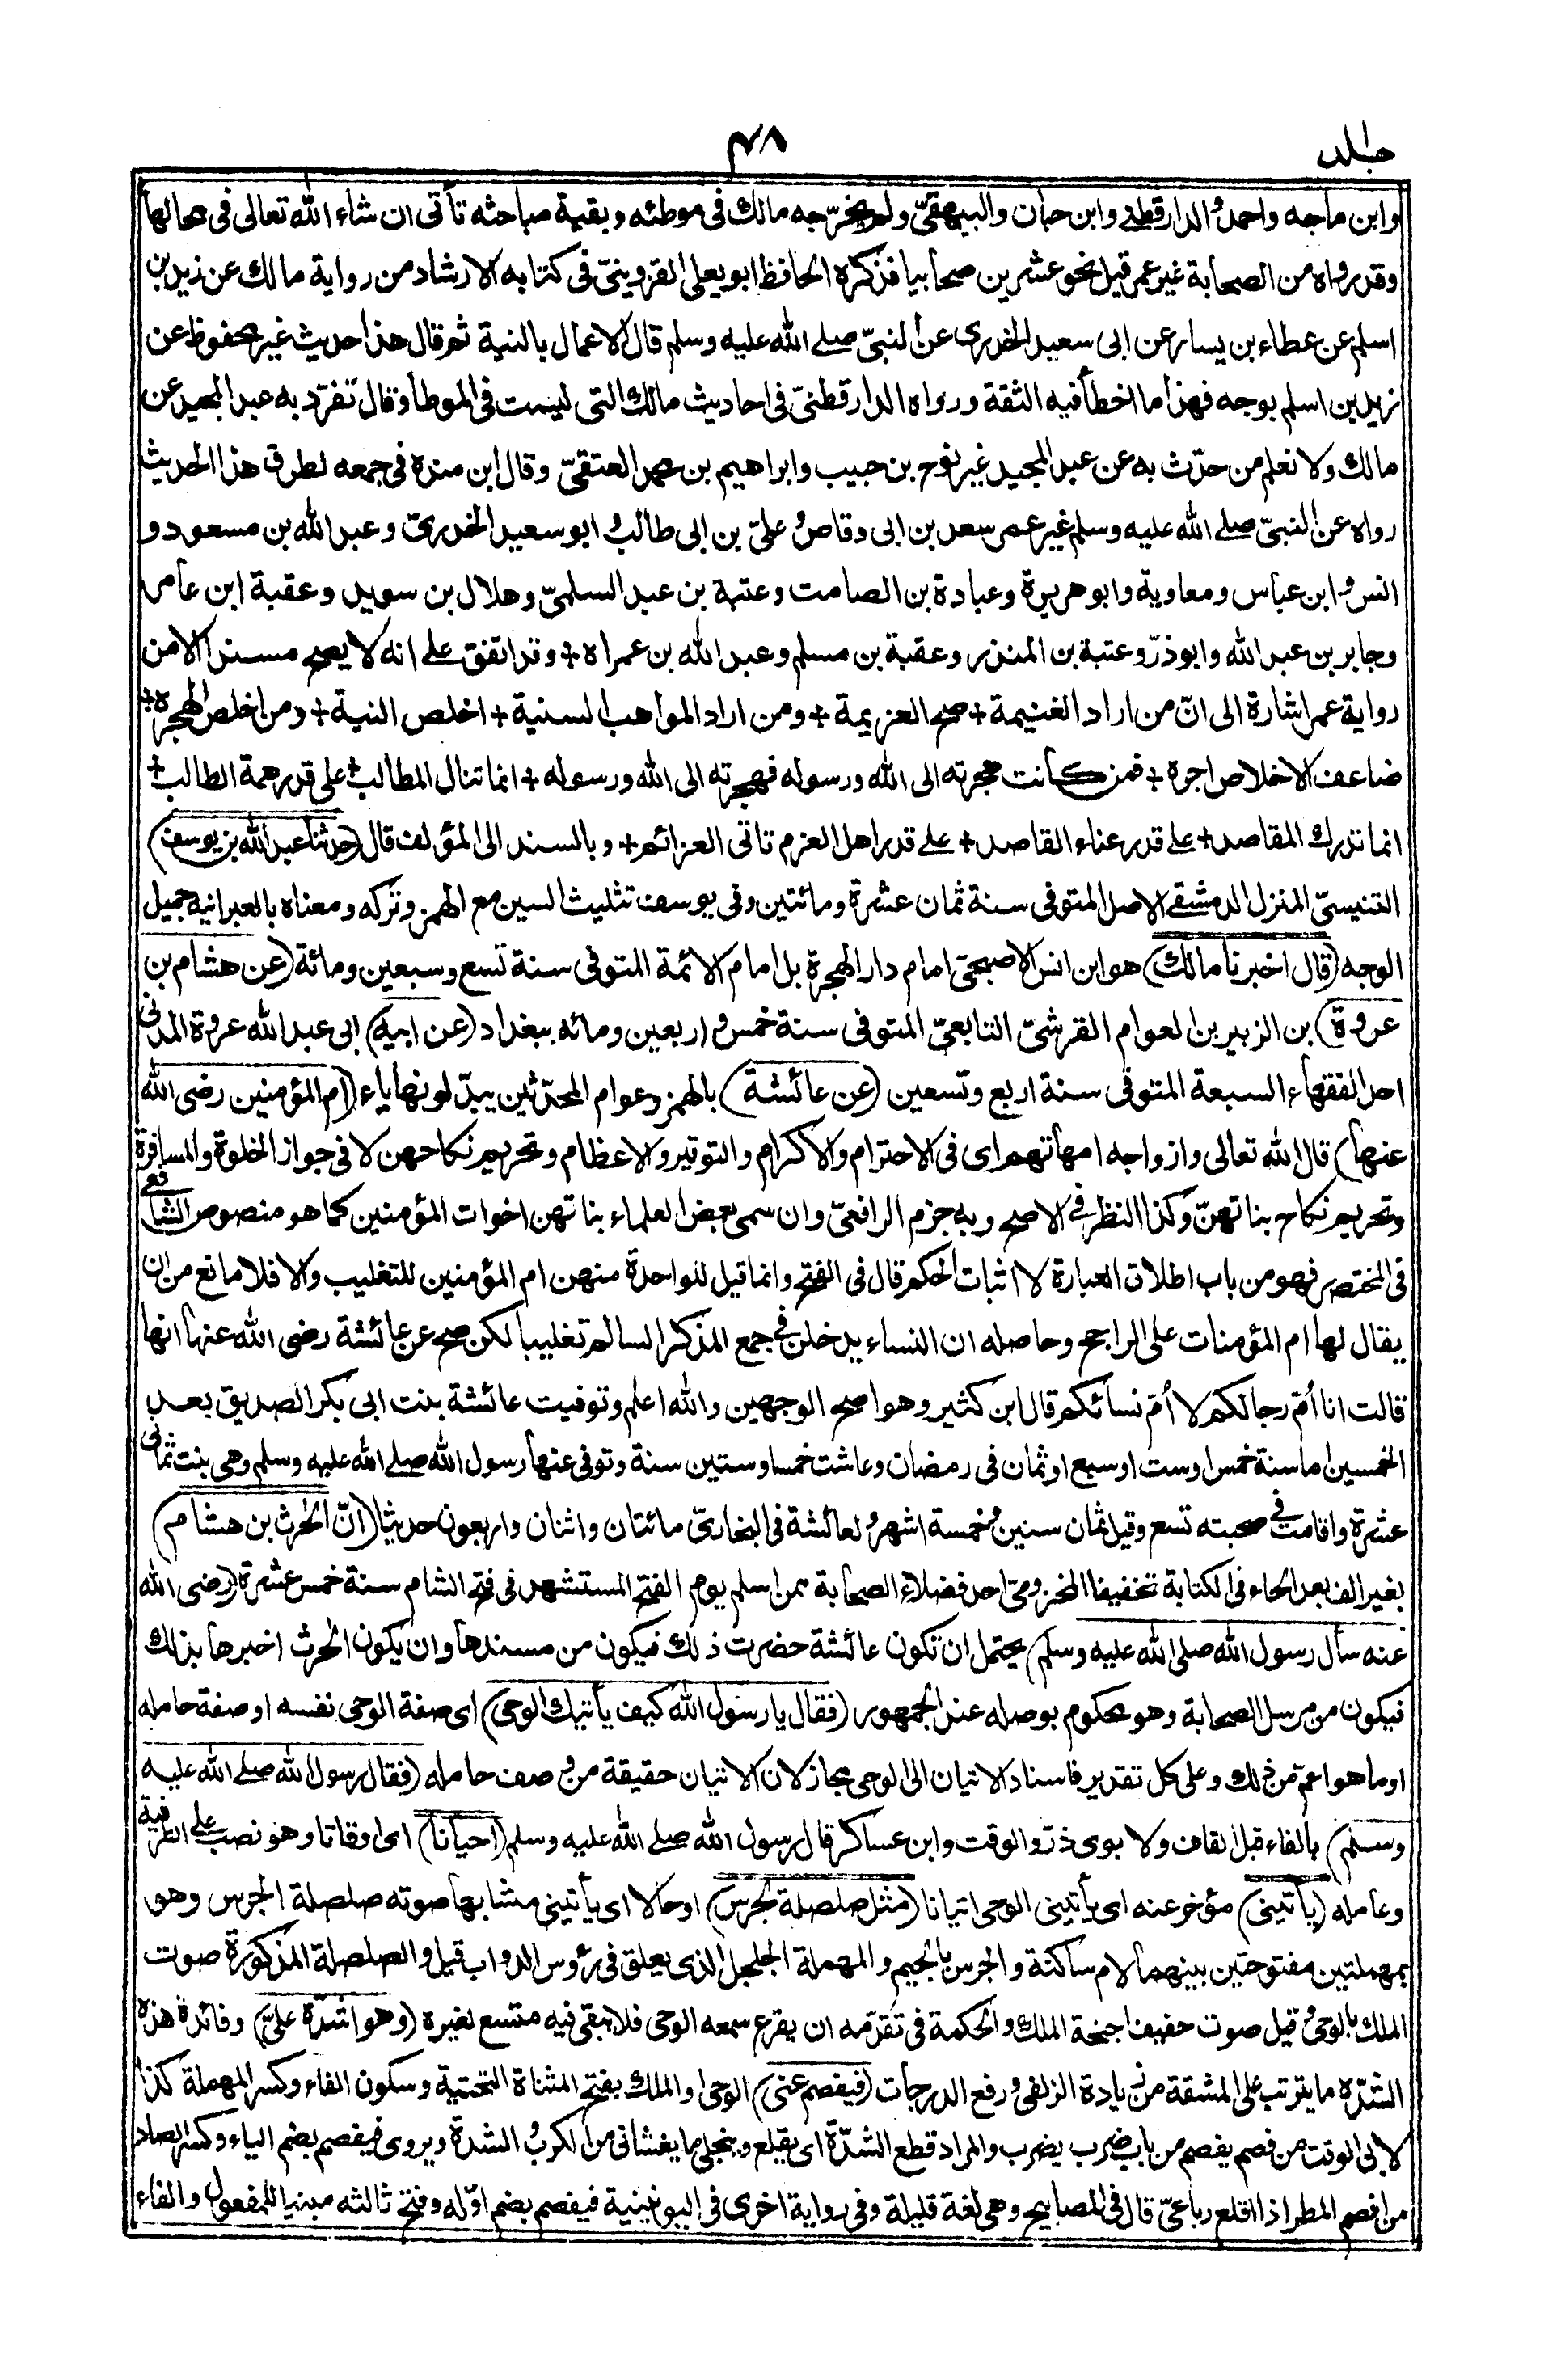 جلد
٤٨
وابن ماجه واحمد والدارقطني وابن حبان والبيهقيّ ولم يخرّجه مالك فى موطئه وبقية مباحثه تأتى ان شاء الله تعالى فى محالها
وقد رواه من الصحابة غير عمر قيل نحو عشرين صحابيا فذكره الحافظ ابو يعلى القزوينىّ فى كتابه الارشاد من رواية مالك عن زيد بن
اسلم عن عطاء بن يسار عن ابى سعيد الخدرى عن النبىّ صلے الله عليه وسلم قال الاعمال بالنية ثم قال هذا حديث غير محفوظ عن
زيد بن اسلم بوجه فهذا ما اخطأ فيه الثقة ورواه الدارقطنىّ فى احاديث مالك التى ليست فى الموطأ وقال تفرّد به عبد المجيد عن
مالك ولا نعلم من حدّث به عن عبد المجيد غير نوح بن حبيب وابراهيم بن محمد العتقىّ وقال ابن منده فى جمعه لطرق هذا الحديث
رواه عن النبىّ صلے الله عليه وسلم غير عمر سعد بن ابى وقاص وعلىّ بن ابى طالب وابو سعيد الخدرىّ وعبد الله بن مسعود و
انس وابن عباس ومعاوية وابو هريرة وعبادة بن الصامت وعتبة بن عبد السلمىّ وهلال بن سويد وعقبة ابن عامر
وجابر بن عبد الله وابو ذرّ وعتبة بن المنذر وعقبة بن مسلم وعبد الله بن عمر اه + وقد اتفق علے انه لا يصح مسندا الا من
رواية عمر اشارة الى انّ من اراد الغنيمة + صحح العزيمة + ومن اراد المواهب السنية + اخلص النية + ومن اخلص الهجرة +
ضاعف الاخلاص اجره + فمن كانت هجرته الى الله ورسوله فهجرته الى الله ورسوله + انما تنال المطالب + على قدر همة الطالب +
انما تدرك المقاصد + علے قدر عناء القاصد + علے قدر اهل العزم تاتى العزائم + وبالسند الى المؤلف قال (حدثنا عبد الله بن يوسف)
التنيسىّ المنزل الدمشقے الاصل المتوفى سنة ثمان عشرة ومائتين وفى يوسف تثليث السين مع الهمز وتركه ومعناه بالعبرانية جميل
الوجه (قال اخبرنا مالك) هو ابن انس الاصبحىّ امام دار الهجرة بل امام الائمة المتوفى سنة تسع وسبعين ومائة (عن هشام بن
عروة) بن الزبير بن العوام القرشىّ التابعىّ المتوفى سنة خمس واربعين ومائه ببغداد (عن ابيه) ابى عبد الله عروة المدنى
احد الفقهاء السبعة المتوفى سنة اربع وتسعين (عن عائشة) بالهمز وعوام المحدّثين يبدّلونها ياء (ام المؤمنين رضى الله
عنها) قال الله تعالى وازواجه امهاتهم اى فى الاحترام والاكرام والتوقير والاعظام وتحريم نكاحهن لا فى جواز الخلوة والمسافرة
وتحريم نكاح بناتهنّ وكذا النظر فے الاصح وبه جزم الرافعىّ وان سمى بعض العلماء بناتهن اخوات المؤمنين كما هو منصوص الشافعے
فى المختصر فهو من باب اطلاق العبارة لا اثبات الحكم قال فى الفتح وانما قيل للواحدة منهن ام المؤمنين للتغليب والا فلا مانع من ان
يقال لها ام المؤمنات على الراجح وحاصله ان النساء يدخلن فے جمع المذكر السالم تغليبا لكن صح عن عائشة رضى الله عنها انها
قالت انا اُمّ رجالكم لا اُمّ نسائكم قال ابن كثير وهو اصح الوجهين والله اعلم وتوفيت عائشة بنت ابى بكر الصديق بعد
الخمسين اما سنة خمس او ست او سبع او ثمان فى رمضان وعاشت خمسا وستين سنة وتوفى عنها رسول الله صلے الله عليه وسلم وهى بنت ثمانى
عشرة واقامت فے صحبته تسع وقيل ثمان سنين وخمسة اشهر ولعائشة فى البخارىّ مائتان واثنان واربعون حديثا (انّ الحرث بن هشام)
بغير الف بعد الحاء فى الكتابة تخفيفا المخزومىّ احد فضلاء الصحابة ممن اسلم يوم الفتح المستشهد فى فتح الشام سنة خمس عشرة (رضى الله
عنه سأل رسول الله صلى الله عليه وسلم) يحتمل ان تكون عائشة حضرت ذلك فيكون من مسندها وان يكون الحرث اخبرها بذلك
فيكون من مرسل الصحابة وهو محكوم بوصله عند الجمهور (فقال يا رسول الله كيف يأتيك الوحى) اى صفة الوحى نفسه او صفة حامله
او ما هو اعمّ من ذلك وعلى كل تقدير فاسناد الاتيان الى الوحى مجاز لان الاتيان حقيقة من وصف حامله (فقال رسول الله صلے الله عليه
وسلم) بالفاء قبل القاف ولابوى ذرّ والوقت وابن عساكر قال رسول الله صلے الله عليه وسلم (احيانا) اى اوقاتا وهو نصب علے الظرفية
وعامله (يأتينى) مؤخر عنه اى يأتينى الوحى اتيانا (مثل صلصلة الجرس) او حالا اى يأتينى مشابها صوته صلصلة الجرس وهو
بمهملتين مفتوحتين بينهما لام ساكنة والجرس بالجيم والمهملة الجلجل الذى يعلق فى رؤس الدواب قيل والصلصلة المذكورة صوت
الملك بالوحى وقيل صوت حفيف اجنحة الملك والحكمة فى تقدّمه ان يقرع سمعه الوحى فلا يبقى فيه متسع لغيره (وهو اشدّه علىّ) وفائدة هذه
الشدّة ما يترتب على المشقة من زيادة الزلفى ورفع الدرجات (فيفصم عنى) الوحى او الملك بفتح المثناة التحتية وسكون الفاء وكسر المهملة كذا
لابى الوقت من فصم يفصم من باب ضرب يضرب والمراد قطع الشدّة اى يقلع وينجلى ما يغشانى من الكرب والشدة ويروى فيفصم بضم الياء وكسر الصاد
من افصم المطر اذا اقلع رباعىّ قال فى المصابيح وهى لغة قليلة وفى رواية اخرى فى اليونينية فيفصم بضم اوّله وفتح ثالثه مبنيا للمفعول والفاء